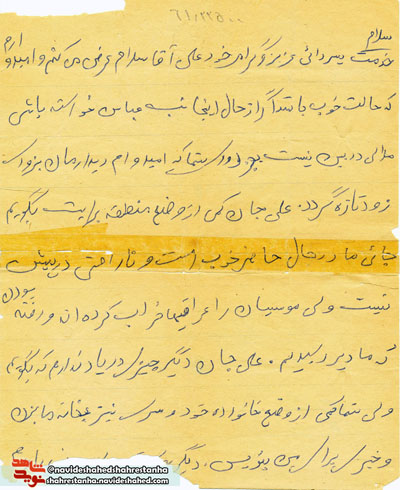 ۶۱،۲۲۵۰۰
سلام
خدمت پسردائی عزیز و گرامی خود علی آقا سلام عرض می کنم و امیدوارم
که حالت خوب باشد اگر از حال اینجانب عباس خواسته باشی
ملالی در بین نیست بجز دوری شما که امیدوارم دیدارمان بزودی
زود تازه گردد. علی جان کمی از وضع منطقه برایت بگویم
جائی ما در حال حاضر خوب است و ناراحتی در پیش
نیست ولی موسیان را عراقیها خراب کرده اند و رفته بودن
که ما دیر رسیدیم. علی جان دیگر چیزی در یاد ندارم که بگویم
ولی شما کمی از وضع خانواده خود و سری نیز بخانه ما بزن
و خبری برای من بنویس. دیگر
نوید شاهد
@navideshahedshahrestanha
shahrestanha.navideshahed.com